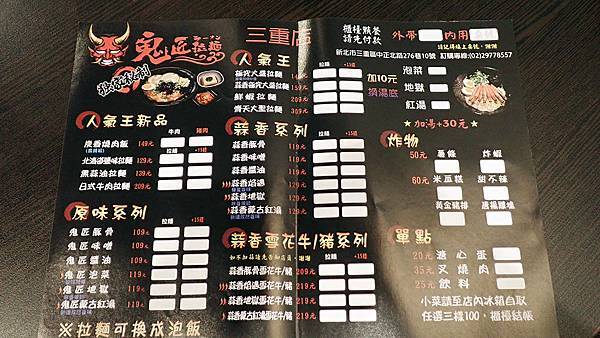 鬼匠拉麵
ラーメン
三重店
櫃檯點餐
請先付款
外帶
內用
請記得填上桌號，謝謝
新北市三重區中正北路276巷10號 訂購專線:(02)29778557
人氣王
拉麵 +15燒
極究大盛拉麵 159元
蒜香極究大盛拉麵 159元
鮮蝦拉麵 209元
齊天大聖拉麵 309元
加10元
換湯底
泡菜
地獄
紅湯
★加湯+30元★
人氣王新品
牛肉 豬肉
炭香燒肉飯 149元
拉麵 +15燒
北海道鹽味拉麵 129元
黑蒜油拉麵 139元
日式牛肉拉麵 209元
蒜香系列
拉麵 +15燒
蒜香豚骨 119元
蒜香味噌 119元
蒜香醬油 119元
蒜香焰遇 129元
蒜香地獄 129元
蒜香蒙古紅湯 129元
炸物
50元 薯條 炸蝦
60元 米豆糕 甜不辣
黃金豬排 唐揚雞塊
原味系列
拉麵 +15燒
鬼匠豚骨 109元
鬼匠味噌 109元
鬼匠醬油 109元
鬼匠泡菜 119元
鬼匠地獄 119元
鬼匠蒙古紅湯 119元
蒜香雪花牛/豬系列
如不加蒜請先告知店員，謝謝
拉麵 +15燒
蒜香豚骨雪花牛/豬 209元
蒜香味噌雪花牛/豬 209元
蒜香醬油雪花牛/豬 209元
蒜香焰遇雪花牛/豬 219元
蒜香地獄雪花牛/豬 219元
蒜香蒙古紅湯雪花牛/豬 219元
單點
20元 溏心蛋
35元 叉燒肉
25元 飲料
小菜請至店內冰箱自取
任選三樣100，櫃檯結帳
※拉麵可換成泡飯